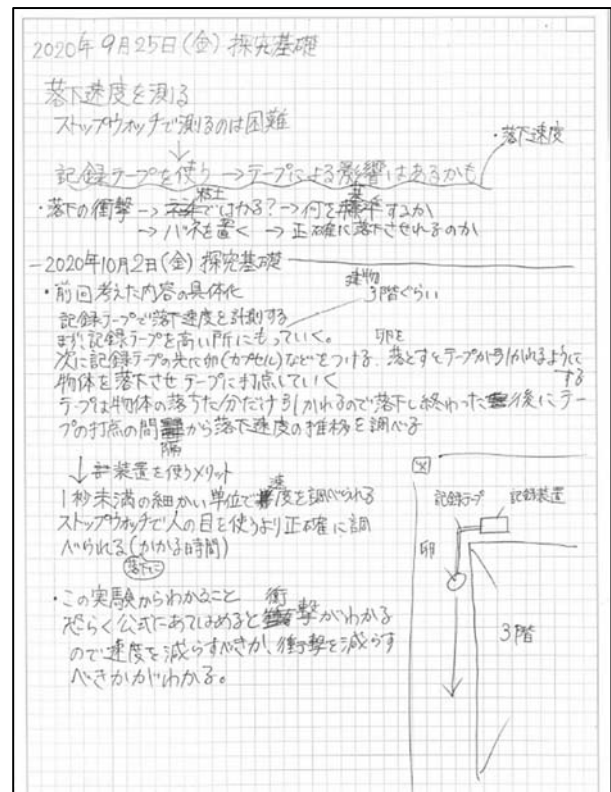 2020年9月25日(金) 探究基礎
落下速度を測る
ストップウォッチで測るのは困難
↓
・落下速度
記録テープを使う→テープによる影響はあるかも
・落下の衝撃→粘土ではかる?→何を基準するか
→バネを置く →正確に落下させれるのか
2020年10月2日(金) 探究基礎
・前回考えた内容の具体化
建物
3階ぐらい
記録テープで落下速度を計測する
まず、記録テープを高い所にもっていく。
次に記録テープの先に卵(カプセル)などをつける。卵を落とすとテープが引かれるようにする
物体を落下させテープに打点していく
テープは物体の落ちた分だけ引かれるので落下し終わった後にテー
プの打点の間隔から落下速度の推移を調べる
↓装置を使うメリット
1秒未満の細かい単位で速度を調べられる
ストップウォッチで人の目を使うより正確に調
べられる(かかる時間)
落下に
・この実験からわかること
恐らく公式にあてはめると衝撃がわかる
ので速度を減らすべきか、衝撃を減らす
べきかがわかる。
図
記録テープ 記録装置
卵
3階